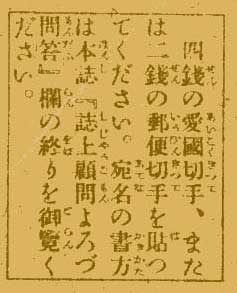 四錢の愛國切手、また
は二錢の郵便切手を貼つ
てください。宛名の書方
は本誌『誌上顧問よろづ
問答』欄の終りを御覽く
ださい。